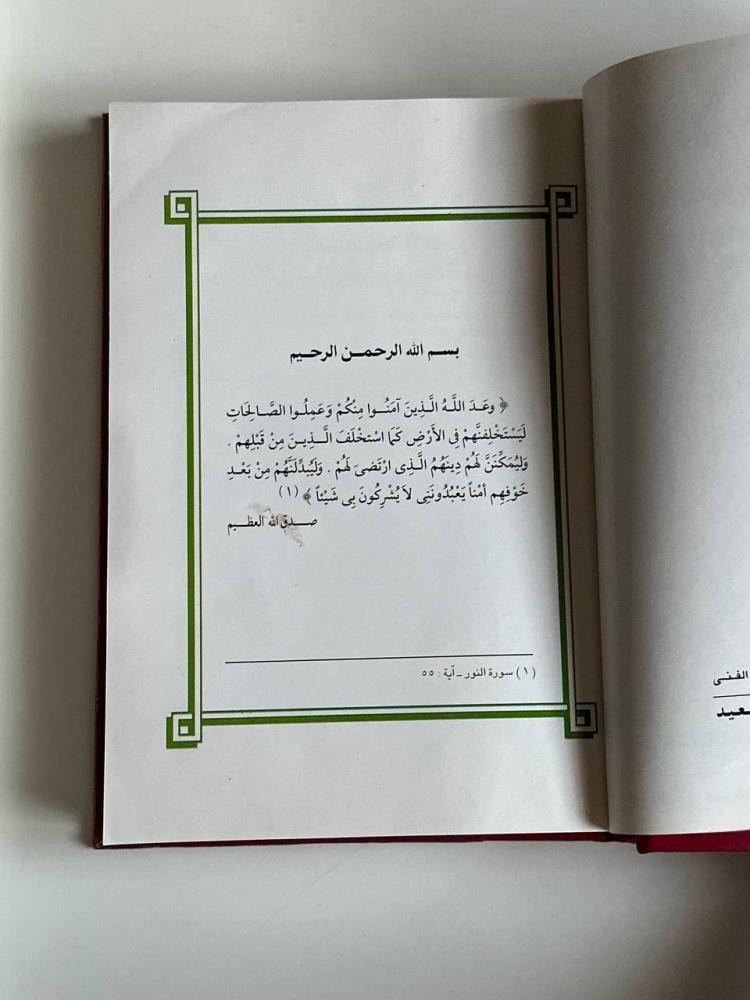 بسم الله الرحمن الرحيم
﴿ وعَدَ اللَّهُ الَّذِينَ آمَنُوا مِنْكُمْ وَعَمِلُوا الصَّالِحَاتِ
لَيَسْتَخْلِفَنَّهمْ فِى الأَرْضِ كَمَا اسْتخْلَفَ الَّذِينَ مِنْ قَبْلِهِمْ .
وَليُمَكِّنَنَّ لَهُمْ دِينَهُمُ الَّذِى ارْتَضَىَ لَهُمْ . وَليُبَدِّلَنَّهُمْ مِنْ بَعْدِ
خَوْفِهِم أمْناً يَعْبُدُونَنِى لاَ يُشْرِكُونَ بِى شَيْئاً ﴾ (١)
صدق الله العظيم
(١) سورة النور ـ آية : ٥٥
الفنى